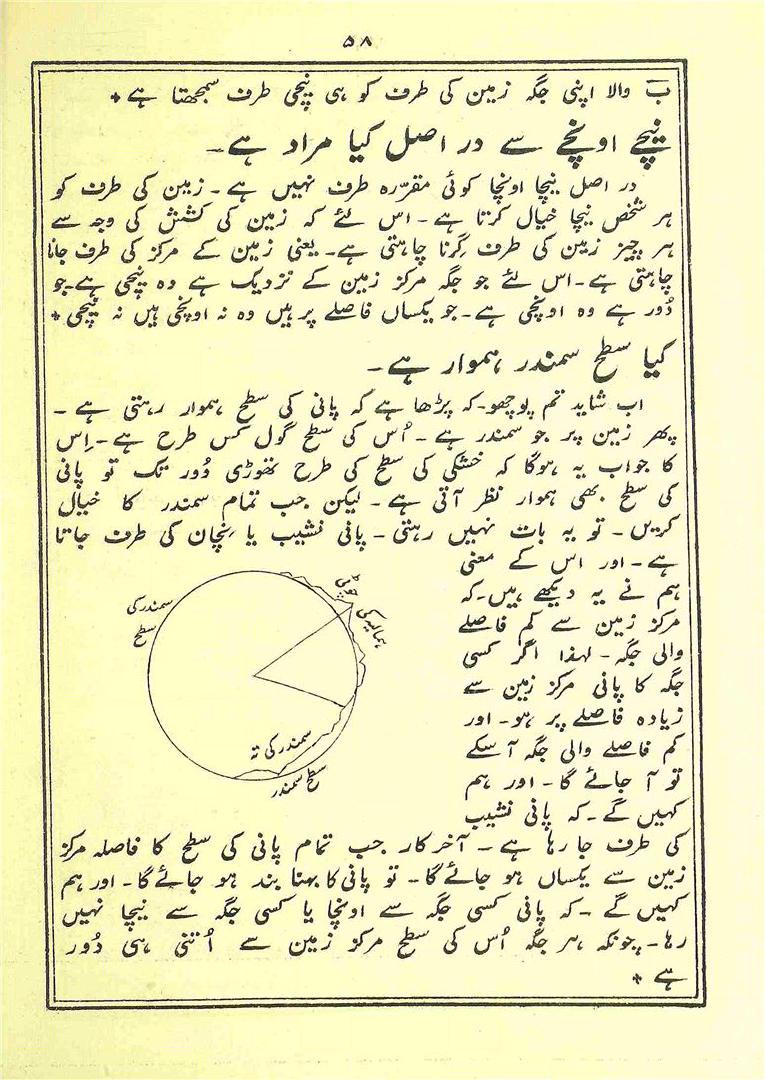 ۵۸
ب والا اپنی جگہ زمین کی طرف کو ہی نیچی طرف سمجھتا ہے *
نیچے اونچے سے در اصل کیا مراد ہے۔
در اصل نیچا اونچا کوئی مقررہ طرف نہیں ہے۔ زمین کی طرف کو
ہر شخص نیچا خیال کرتا ہے۔ اس لئے کہ زمین کی کشش کی وجہ سے
ہر چیز زمین کی طرف گِرنا چاہتی ہے۔ یعنی زمین کے مرکز کی طرف جانا
چاہتی ہے۔ اس لئے جو جگہ مرکز زمین کے نزدیک ہے وہ نیچی ہے۔ جو
دُور ہے وہ اونچی ہے۔ جو یکساں فاصلے پر ہیں وہ نہ اونچی ہیں نہ نیچی *
کیا سطح سمندر ہموار ہے۔
اب شاید تم پوچھو۔ کہ پڑھا ہے کہ پانی کی سطح ہموار رہتی ہے۔
پھر زمین پر جو سمندر ہے۔ اُس کی سطح گول کس طرح ہے۔ اِس
کا جواب یہ ہوگا کہ خشکی کی سطح کی طرح تھوڑی دُور تک تو پانی
کی سطح بھی ہموار نظر آتی ہے۔ لیکن جب تمام سمندر کا خیال
کریں۔ تو یہ بات نہیں رہتی۔ پانی نشیب یا نِچان کی طرف جاتا
ہے۔ اور اس کے معنی
ہم نے یہ دیکھے ہیں۔ کہ
مرکز زمین سے کم فاصلے
والی جگہ۔ لہذا اگر کسی
جگہ کا پانی مرکز زمین سے
زیادہ فاصلے پر ہو۔ اور
کم فاصلے والی جگہ آ سکے
تو آ جائے گا۔ اور ہم
کہیں گے۔ کہ پانی نشیب
ہمالیہ کی چوٹی
سمندر کی
سطح
سمندر کی تہ
سطح سمندر
کی طرف جا رہا ہے۔ آخر کار جب تمام پانی کی سطح کا فاصلہ مرکز
زمین سے یکساں ہو جائے گا۔ تو پانی کا بہنا بند ہو جائے گا۔ اور ہم
کہیں گے۔ کہ پانی کسی جگہ سے اونچا یا کسی جگہ سے نیچا نہیں
رہا۔ چونکہ ہر جگہ اُس کی سطح مرکز زمین سے اُتنی ہی دُور
ہے *